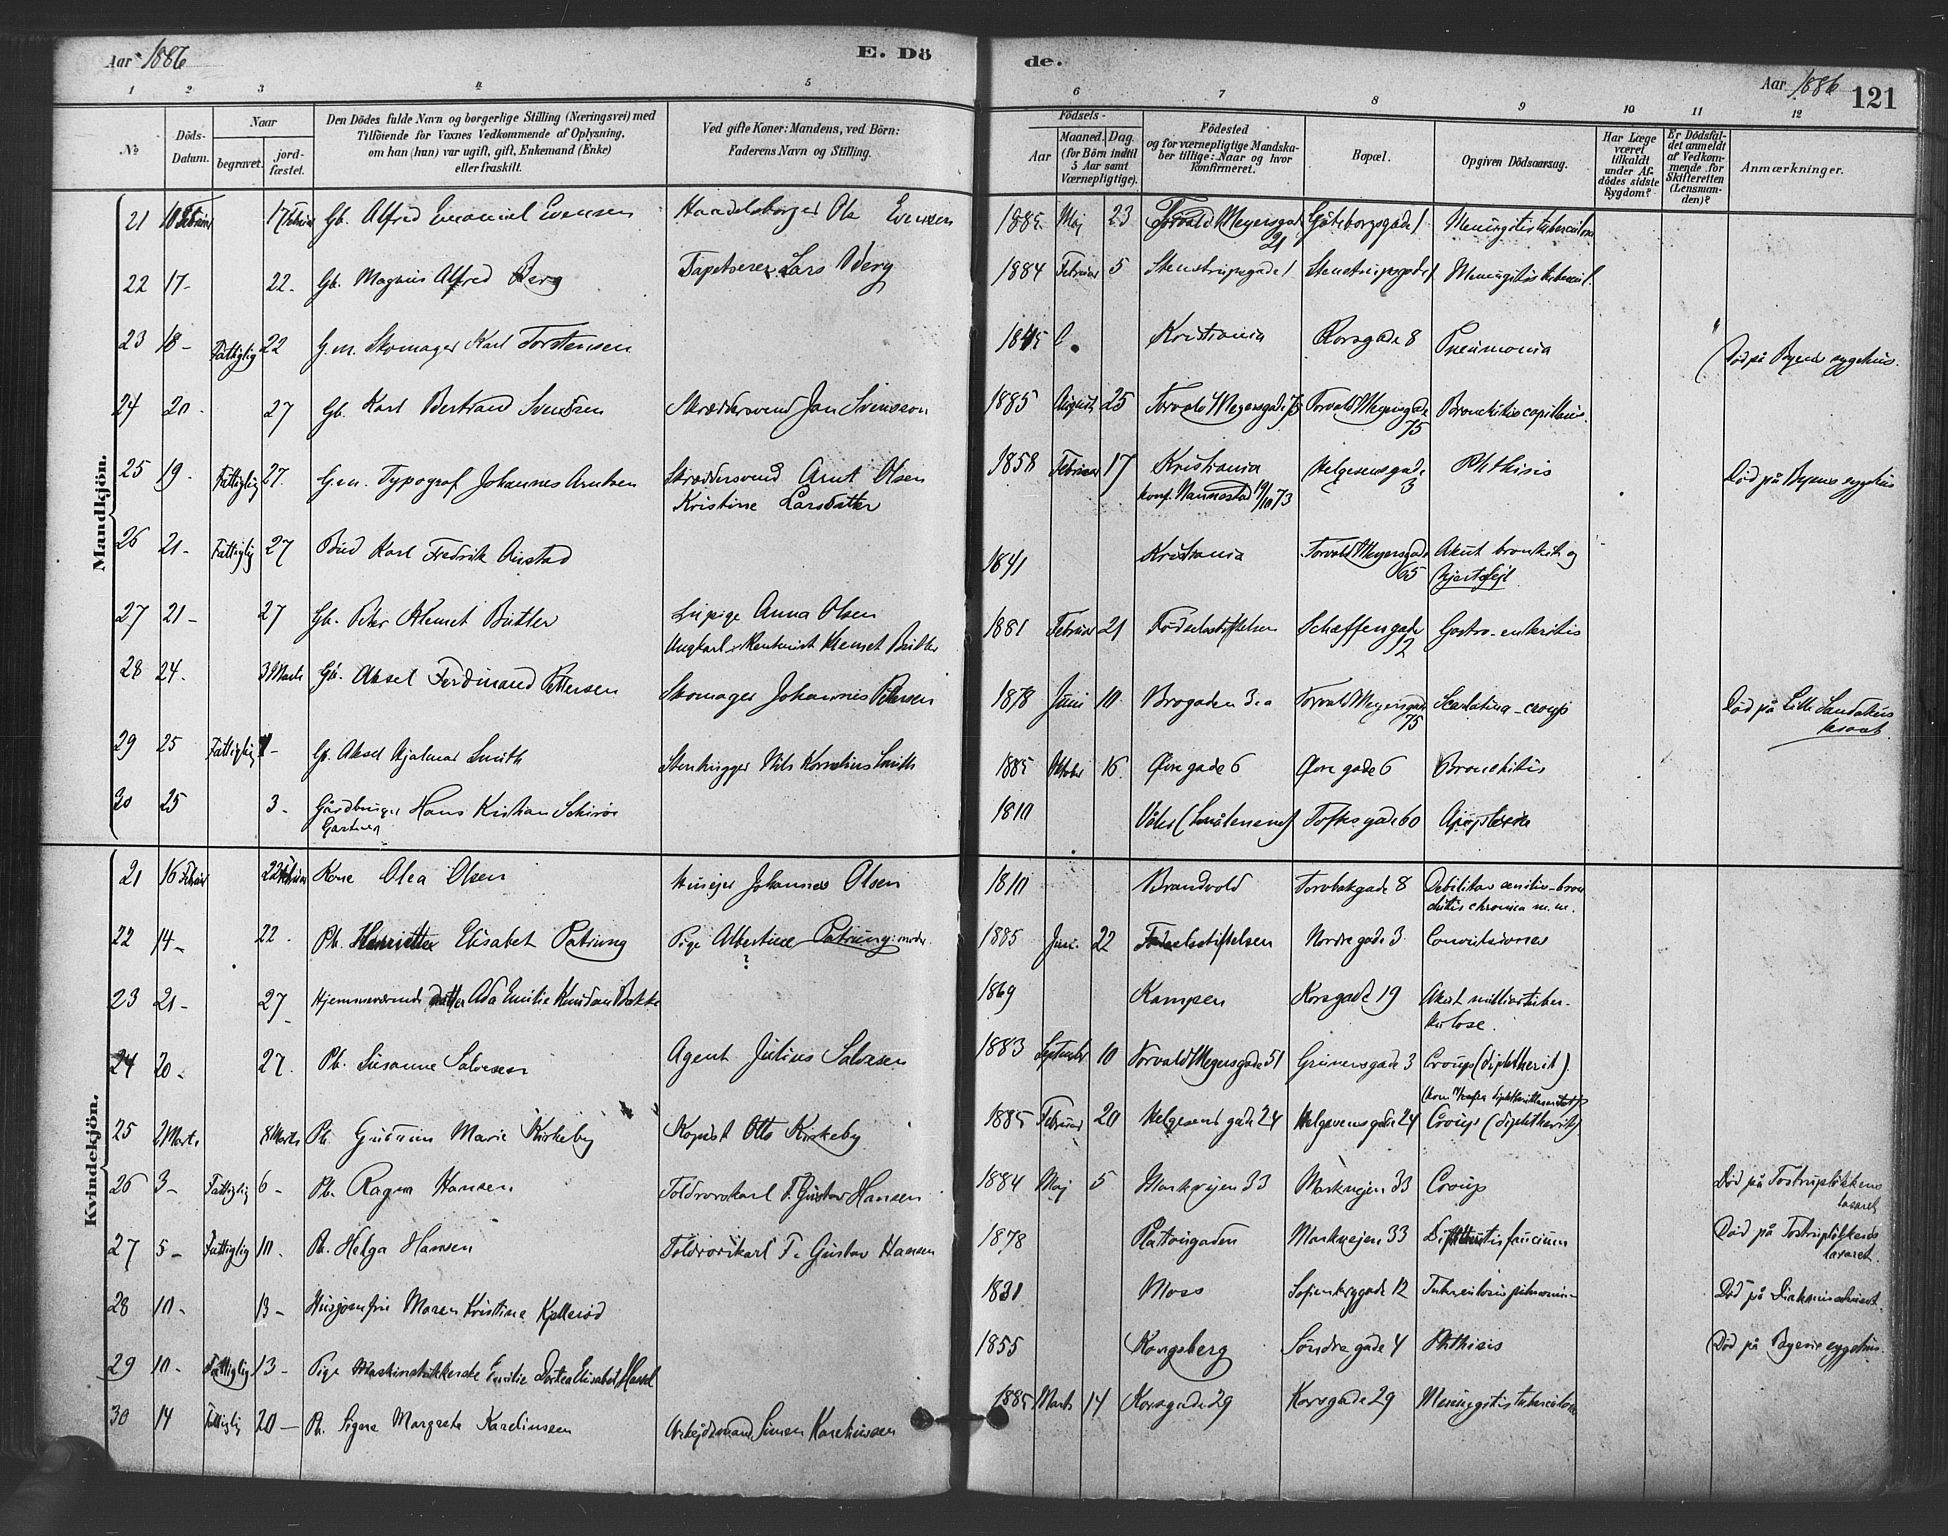 Aar 1886 E. Dö de. Aar 1886 121
1 2 3 4 5 6 7 8 9 10 11 12
No Döds-Datum. Naar begravet. jord-fæstet. Den Dödes fulde Navn og borgerlige Stilling (Næringsvei) med Tilföiende for Voxnes Vedkommende af Oplysning, om han (hun) var ugift, gift, Enkemand (Enke) eller fraskilt. Ved gifte Koner: Mandens, ved Börn: Faderens Navn og Stilling. Födsels- Aar Maaned. Dag. (for Börn indtil 5 Aar samt Værnepligtige). Födested og for værnepligtige Mandska-ber tillige: Naar og hvor Konfirmeret. Bopæl. Opgiven Dödsaarsag. Har Læge været tilkaldt under Af-dödes sidste Sygdom? Er Dödsfal-det anmeldt af Vedkom-mende for Skifteretten (Lensman-den)? Anmærkninger.
Mandkjön.
21 18 Februar 17 Februar Gb. Alfred Emanuel Evensen Handelsborger Ole Evensen 1885 Maj 23 Torvald Meyersgade 21 Göteborgsgade 1 Meningitis tuberculosa
22 17- 22- Gb. Magnus Alfred Berg Tapetserer Lars Berg 1884 Februar 5 Stenstrupsgade 1 Stenstrupsgade 1 Meningitis tubercul.
23 18- Fattiglig 22 G.m. Skomager Karl Torstensen 1845 Kristiania Korsgade 8 Pneumonia Död på Byens sygehus.
24 20- 27 Gb. Karl Bertrand Svendsen Skræddersvend Jan Svensson 1885 August 25 Torvald Meyersgade 75 Torvald Meyersgade 75 Bronchitis capillaris.
25 19- Fattiglig 27. G.m. Typograf Johannes Arntsen Skræddersvend Arnt Olsen 1858 Februar 17 Kristiania Helgesensgade 3 Phthisis Död på Byens sygehus
Kristine Larsdatter konf. Nannestad 19/10 73
26 21- Fattiglig 27 Bud Karl Fredrik Austad 1841 Kristiania Torvald Meyersgade 65 Akut bronkit og hjertefejl
27 21- 27 Gb. Peter Klemet Butler Pige Anna Olsen 1881 Februar 21 Födselsstiftelsen Schæffersgade 2 Gastro-enteritis
Ungkarl Klemet Butler
28 24- 3 Marts Gb. Aksel Ferdinand Pettersen Skomager Johannes Petersen 1878 Juni 10 Brogaden 3a Torvald Meyersgade 75 Scarlatina-croup Död på Lille Lasaret
29 25 Fattiglig 1- Gb. Aksel Hjalmar Smith Stenhugger Nils Kornelius Smith 1885 Oktober 16 Övregade 6 Övregade 6 Bronchitis
30 25 3- Gårdbruger Gartner Hans Kristian 1810 Våler (Smålenene) Toftesgade 60 Apoplexia
Kvindekjön.
21 16 Februar 22 Februar Kone Olea Olsen Husejer Johannes Olsen 1810 Brandvold Torvbakgade 8 Debilitas senilis-bronchitis chronica m.m.
22 14- 22- Pb. Henriette Elisabet Patrung Pige Albertine Patrung: moder ? 1885 Juni 22 Födselsstiftelsen Nordregade 3 Convulsiones
23 21- 27- Hjemmeværende datter Ada Emilie Knudsen Bakke 1869 Kampen Korsgade 19 Akut miliærtuberkulose.
24 20- 27. Pb. Susanne Salvesen Agent Julius Salvesen 1883 September 10 Torvald Meyersgade 51 Grünersgade 3 Croup (diphtherit).
25 2 Marts 8 Marts Pb. Gudrun Marie Kirkeby Kopist Otto Kirkeby 1885 Februar 20 Helgesensgade 24 Helgesensgade 24 Croup (diphtherit)
26 3- Fattiglig 6- Pb. Ragna Hansen Toldrorskarl T. Gustav Hansen 1884 Maj 5 Markvejen 33 Markvejen 33 Croup Död på Tostruplökkens lasaret
27 5- Fattiglig 10. Pb. Helga Hansen Toldrorskarl T. Gustav Hansen 1878 Plattousgaden Markvejen 33 Diphtheritis faucium Död på Tostruplökkens lasaret.
28 10- 13- Husjomfru Maren Kristine 1831 Moss Sofienbergade 12 Död på
29 10- Fattiglig 13- Pige Emilie Dortea Elisabet 1855 Kongsberg Söndregade 4 Phthisis Död på Byens sygehus.
30 14 Fattiglig 20- Pb. Signe Margrete Karelinsen Arbejdsmand Simon Karelinsen 1885 Marts 14 Korsgade 29 Korsgade 29 Meningitis tuberculosa